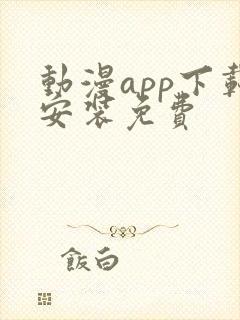 動漫app下載
安裝免費
飯白